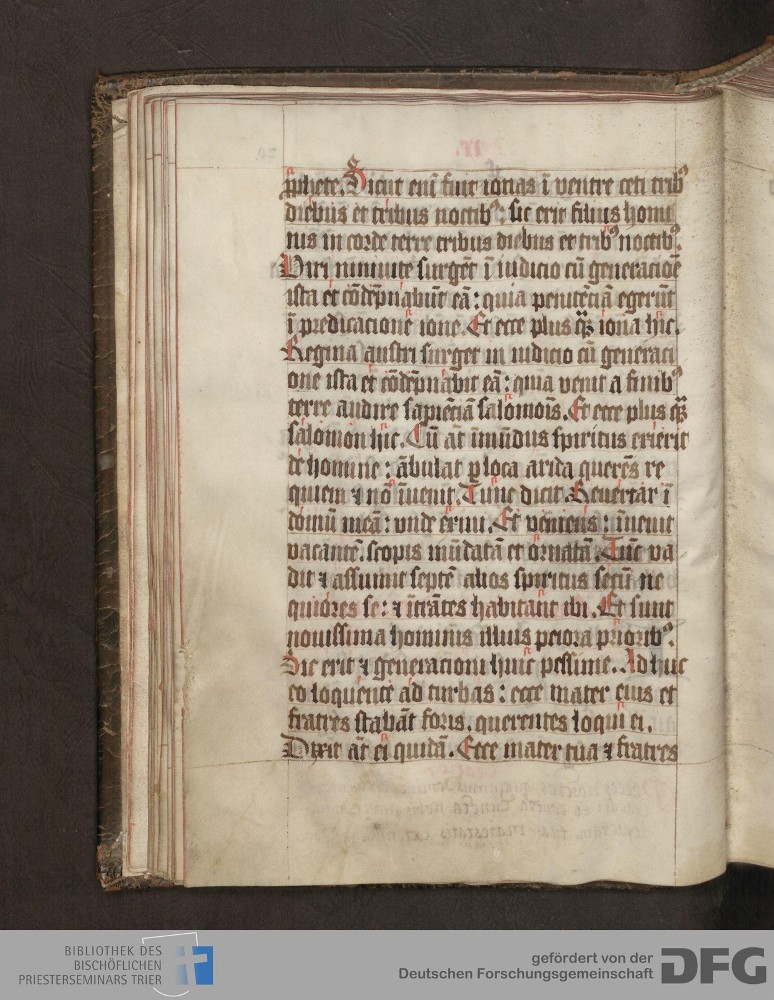 ꝓphete. Sicut eni̅ fuit ionas i̅ ventre ceti trib⁹
diebus et tribus noctib⁹: sic erit filius homi
nis in corde terre tribus diebus et trib⁹ noctib⁹.
Viri niniuite surge̅t i̅ iudicio cu̅ generacio̅e
ista et co̅de̅pnabu̅t ea̅: quia penite̅cia̅ egeru̅t
i̅ predicacione ione. Et ecce plus qͣ̅ iona hic.
Regina austri surget in iudicio cu̅ generaci
one ista et co̅de̅pnabit ea̅: quia venit a finib⁹
terre audire sapie̅cia̅ salomo̅is. Et ecce plus qͣ̅
salomon hic. Cu̅ at̅ i̅mu̅dus spiritus exierit
de homine: a̅bulat ꝑ loca arida quere̅s re
quiem ⁊ no̅ i̅uenit. Tunc dicit. Reuertar i̅
domu̅ mea̅: vnde exiui. Et veniens: i̅uenit
vacante̅. scopis mu̅data̅ et ornata̅. Tu̅c va
dit ⁊ assumit septe̅ alios spiritus secu̅ ne
quiores se: ⁊ i̅tra̅tes habita̅t ibi. Et sunt
nouissima hominis illius peiora priorib⁹.
Sic erit ⁊ generacioni huic pessime. Ad huc
eo loquente ad turbas: ecce mater eius et
fratres staba̅t foris. querentes loqui ei.
Dixit at̅ ei quida̅. Ecce mater tua ⁊ fratres
BIBLIOTHEK DES
BISCHÖFLICHEN
PRIESTERSEMINARS TRIER
gefördert von der
Deutschen Forschungsgemeinschaft
DFG